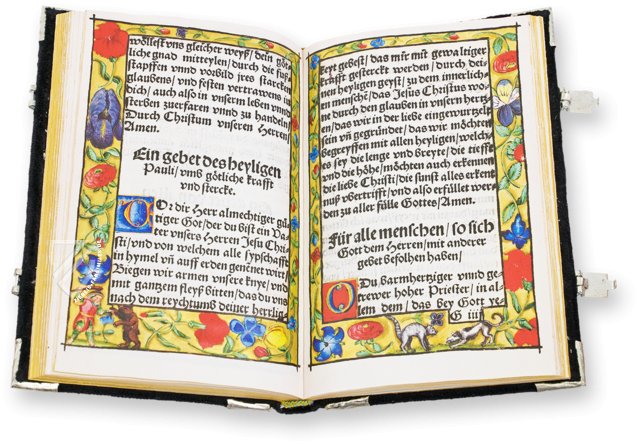 wöllest vns gleicher weyß/ dein göt-
liche gnad mitteylen/ durch die fuß-
stapffen vnnd vorbild jres starcken
glaubens/ vnd festen vertrawens in
dich/ auch also in vnserm leben vnnd
sterben zuerfaren vnnd zu handeln/
Durch Christum vnseren Herren/
Amen.
Ein gebet des heyligen
Pauli/ vmb götliche krafft
vnd stercke.
O: dir Herr almechtiger gü-
tiger Got/ der du bist ein Va-
ter vnsers Herren Jesu Chri-
sti/ vnd von welchem alle sypschafft
in hymel vñ auff erden genẽnet wirt/
Biegen wir armen vnsere knye/ vnd
mit gantzem fleyß bitten/ das du vns
nach dem reychtumb deiner herrlig-
keyt gebest/ das wir mit gewaltiger
krafft gesterckt werden/ durch dei-
nen heyligen geyst/ zu dem innerlich-
en menschẽ/ das Jesus Christus wo-
ne durch den glauben in vnsern hertz-
en/ das wir in der liebe eingewurtzelt
sein vñ gegründet/ das wir möchten
begreyffen mit allen heyligen/ welch-
es sey die lenge vnd breyte/ die tieffe
vnd die höhe/ möchten auch erkennen
die liebe Christi/ die sunst alles erken-
nuß vbertrifft/ vnd also erfüllet wer-
den zu aller fülle Gottes/ Amen.
Für alle menschen/ so sich
Gott dem Herren/ mit anderer
gebet befolhen haben/
O Du barmhertziger vnnd ge-
trewer hoher Priester/ in al-
lem dem/ das bey Gott ze-
G iiij